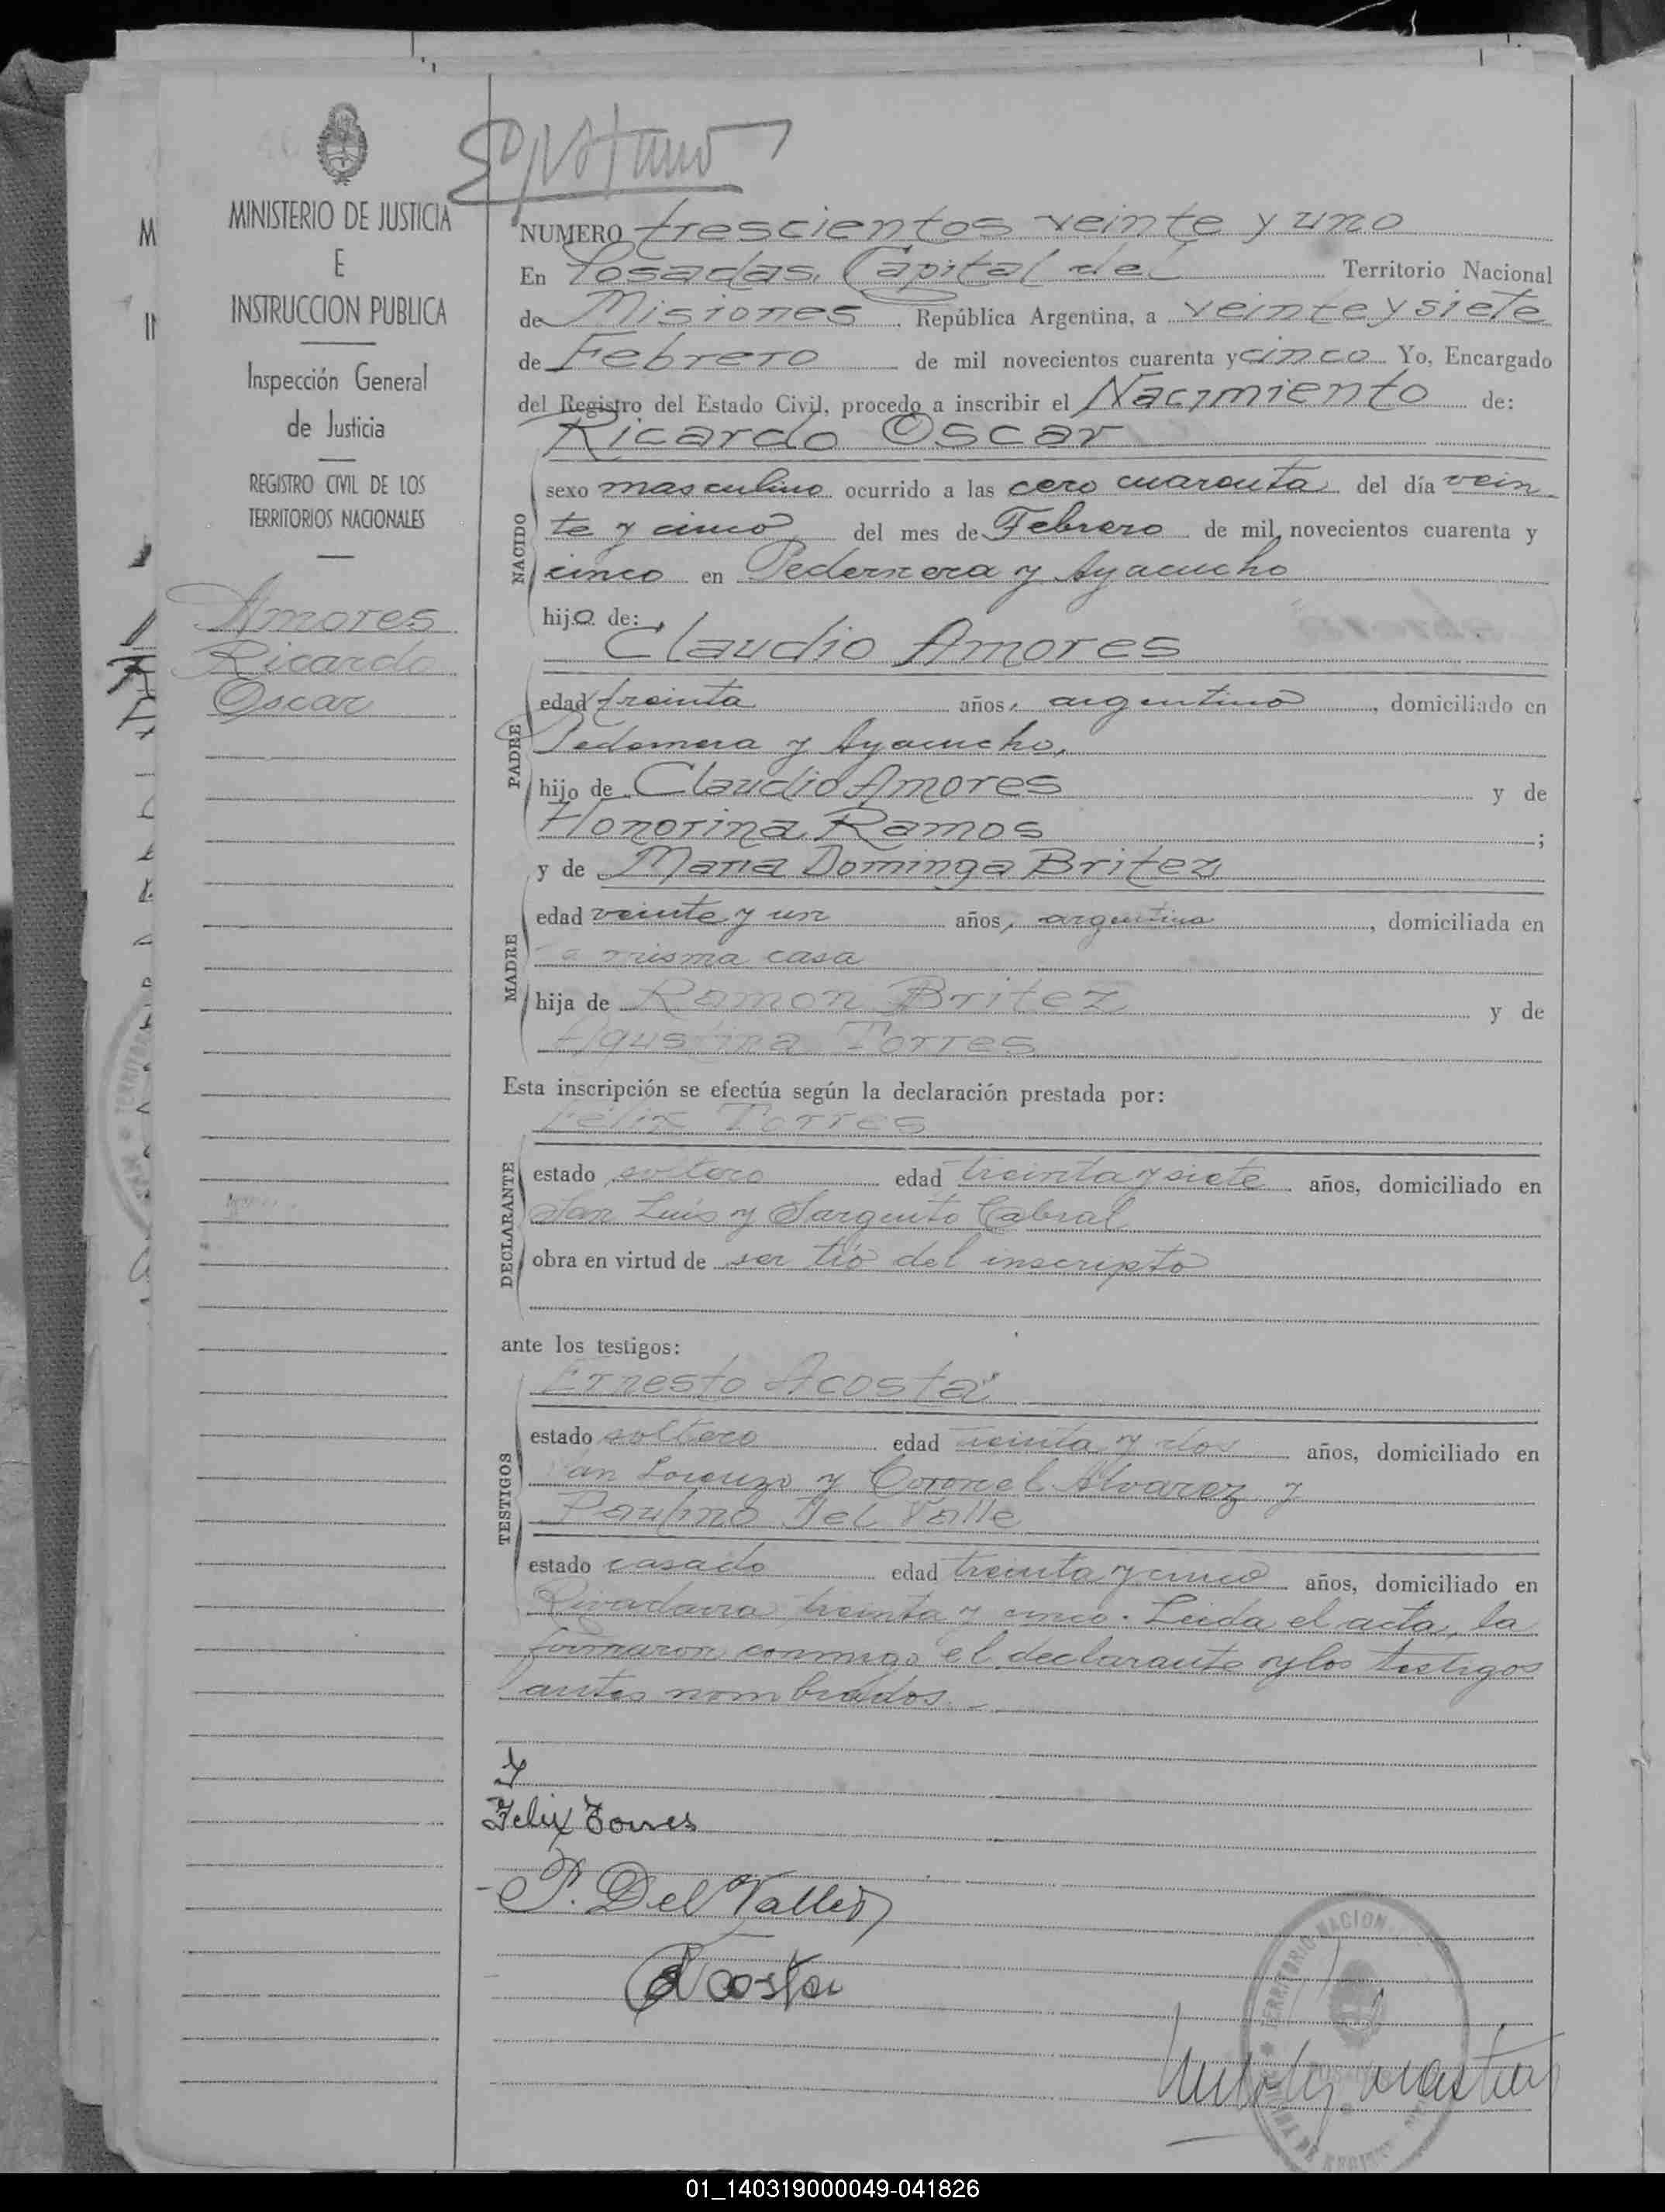 MINISTERIO DE JUSTICIA
E
INSTRUCCION PUBLICA
Inspección General
de Justicia
REGISTRO CIVIL DE LOS
TERRITORIOS NACIONALES
Amores
Ricardo
Oscar
NUMERO trescientos veinte y uno
En Posadas, Capital del Territorio Nacional
de Misiones, República Argentina, a veinte y siete
de Febrero de mil novecientos cuarenta y cinco Yo, Encargado
del Registro del Estado Civil, procedo a inscribir el Nacimiento de:
Ricardo Oscar
NACIDO
sexo masculino ocurrido a las cero cuarenta del día vein
te y cinco del mes de Febrero de mil novecientos cuarenta y
cinco en Pedernera y Ayacucho
hijo de:
Claudio Amores
PADRE
edad treinta años, argentino, domiciliado en
Pedernera y Ayacucho,
hijo de Claudio Amores y de
Honorina Ramos ;
y de Maria Dominga Britez
MADRE
edad veinte y un años, argentina, domiciliada en
la misma casa
hija de Ramon Britez y de
Agustina Torres
Esta inscripción se efectúa según la declaración prestada por:
Félix Torres
DECLARANTE
estado soltero edad treinta y siete años, domiciliado en
San Luis y Sargento Cabral
obra en virtud de ser tio del inscripto
ante los testigos:
Ernesto Acosta
TESTIGOS
estado soltero edad treinta y dos años, domiciliado en
San Lorenzo y Coronel Alvarez y
Paulino Del Valle
estado casado edad treinta y cinco años, domiciliado en
Rivadavia treinta y cinco. Leida el acta, la
firmaron conmigo el declarante y los testigos
antes nombrados.
Felix Torres
P. Del Valle
Acosta
TERRITORIO NACION
01_140319000049-041826